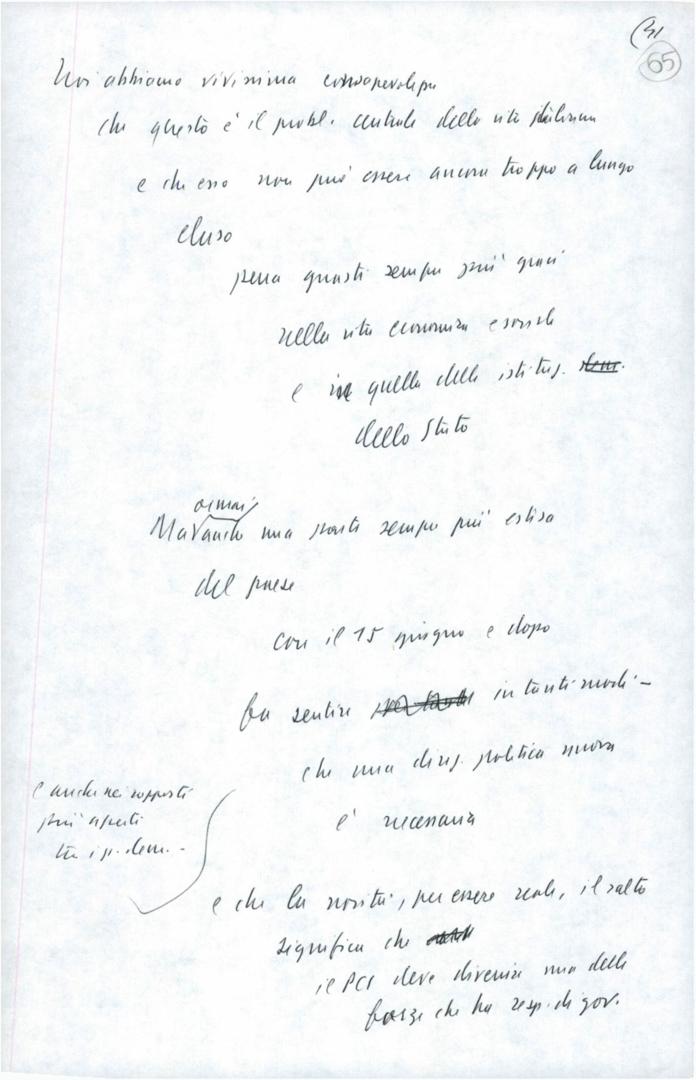 31
65
Noi abbiamo vivissima consapevolezza
che questo è il probl. centrale della vita italiana
e che esso non può essere ancora troppo a lungo
eluso
pena guasti sempre più gravi
nella vita economica e sociale
e in quella delle istituz. dem.
dello Stato
ormai
Ma anche una parte sempre più estesa
del paese
con il 15 giugno e dopo
fa sentire in tanti modi -
che una direz. politica nuova
è necessaria
e anche nei rapporti
più aperti
tra i p. dem. -
e che la novità, per essere reale, il salto
significa che
il PCI deve divenire una delle
forze che ha resp. di gov.